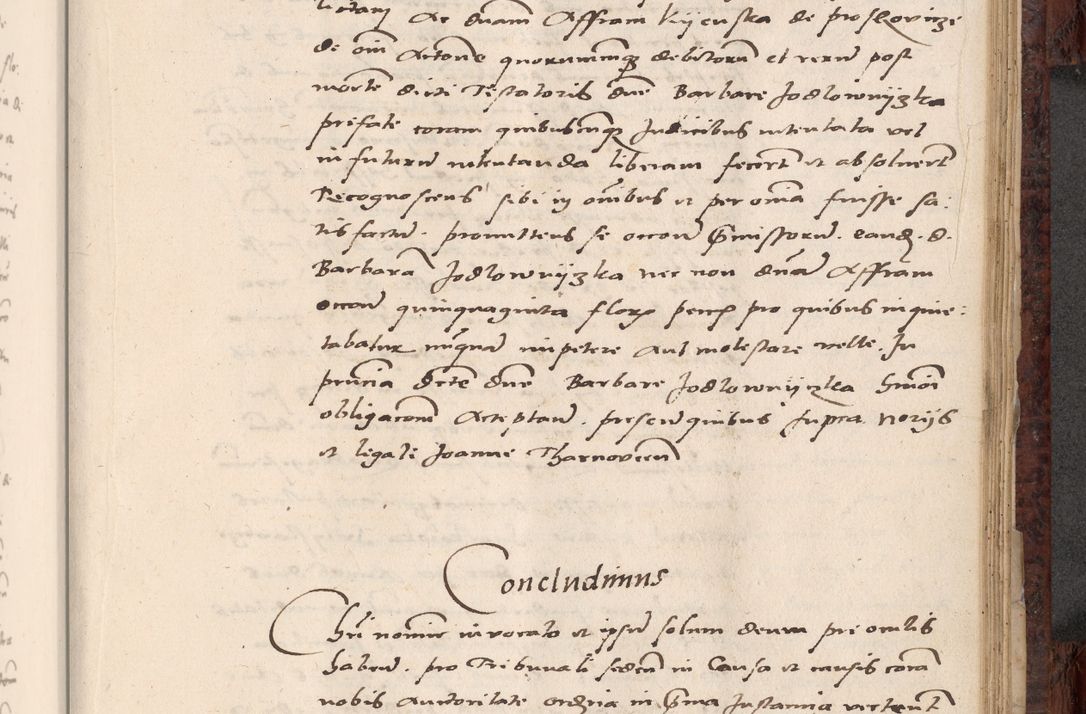 Ac dnam Affram Kijenska de proskovicze
de oim Actone quorumcunqz debitorum et rerum post
morte dicti Testatoris dne Barbare Jodlownijzka
prefate coram quibuscunqz Judicibus intentata vel
in futurum intentanda liberam fecert et absolvert
Recognoscens sibi in omibus et per omia fuisse sa:
tisfactum. promittens se occone pmissorum. eand. d.
Barbara Jodlownijzka nec non dnam Affram
occone quinquaginta flor pecun pro quibus inquie:
tabatur nunquam impetere Aut molestare velle. In
pruncia dicte dne Barbare Jodlownijzka hmoi
obligacom Acceptan. presen quibus supra noriis
et legali Joanne Tharnovienn
Concludimus
Chri nomine invocato et ipsum solum deum pre oculis
haben. pro Tribunali seden in Causa et causis coram
nobis Auctoritate ordinria in prima Instancia vertent